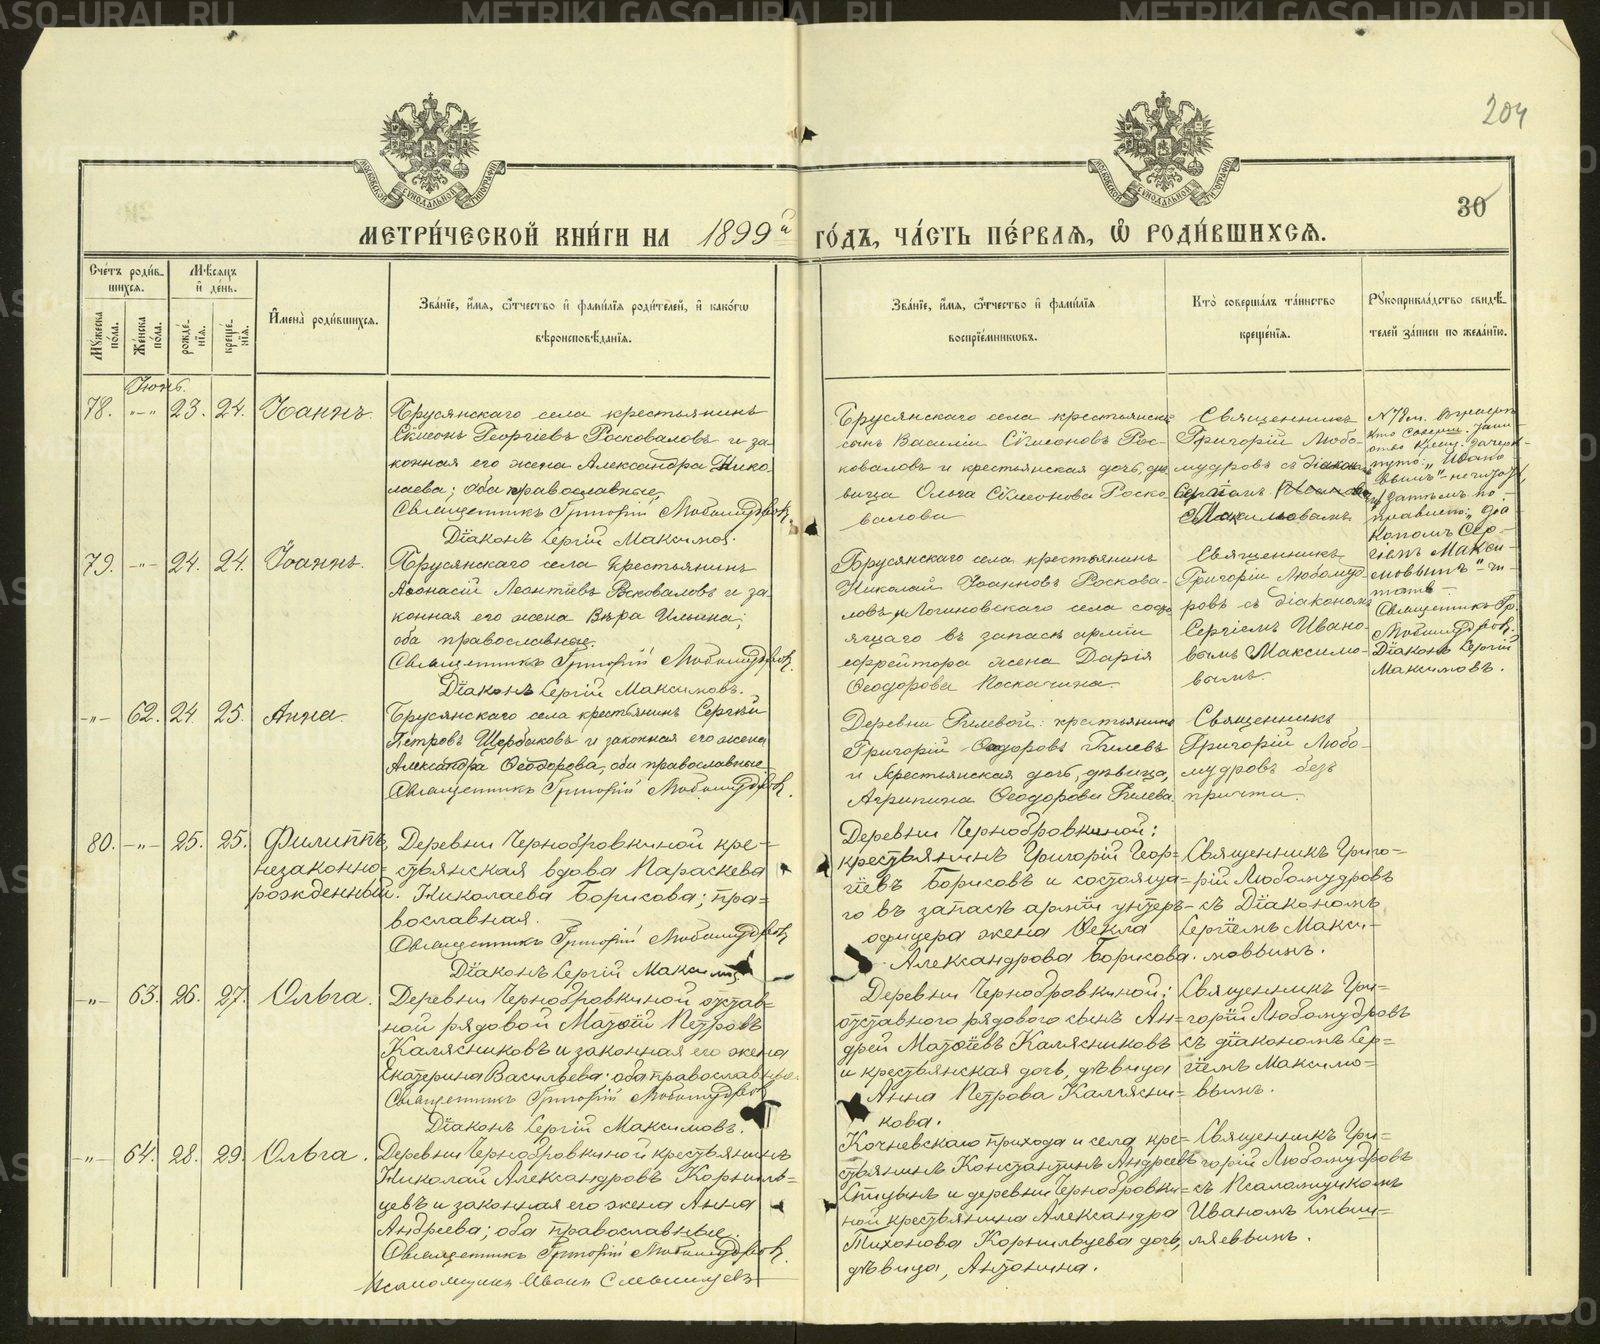 METRIKI.GASO-URAL.RU
204
30
МОСКОВСКОЙ СѴНОДАЛЬНОЙ ТИПОГРАФІИ
МОСКОВСКОЙ СѴНОДАЛЬНОЙ ТИПОГРАФІИ
МЕТРИ́ЧЕСКОЙ КНИ́ГИ НА 1899й ГО́ДЪ, ЧА́СТЬ ПЕ́РВАЯ, Ѽ РОДИ́ВШИХСЯ.
Счетъ родив-
шихся.
Мѣсяцъ
и день.
Мужеска
пола.
Женска
пола.
рожде-
нія.
креще-
нія.
Имена родившихся.
Званіе, имя, отчество и фамилія родителей, и какогѡ
вѣроисповѣданія.
Званіе, имя, отчество и фамилія
воспріемниковъ.
Кто совершалъ таинство
крещенія.
Рукоприкладство свидѣ-
телей записи по желанію.
Іюнь.
78. -"- 23. 24. Іоаннъ.
Брусянскаго села крестьянинъ
Сѵмеонъ Георгіевъ Росковаловъ и за-
конная его жена Александра Нико-
лаева; оба православные,
Священникъ Григорій Любомудровъ.
Діаконъ Сергій Максимов.
Брусянскаго села крестьянскій
сынъ Василій Сѵмеоновъ Рос-
коваловъ и крестьянская дочь, дѣ-
вица Ольга Сѵмеонова Роско-
валова
Священникъ
Григорій Любо-
мудровъ съ діакон
Сергіемъ
Максимовымъ
кто соверш. таин-
"Ивано-
вымъ"
Сер-
гіемъ Макси-
мовымъ" чи-
тать
Священникъ Гр.
Любомудровъ.
Діаконъ Сергій
Максимовъ.
79. -"- 24. 24. Іоаннъ.
Брусянскаго села крестьянинъ
Аѳонасій Леонтіевъ Росковаловъ и за-
конная его жена Вѣра Ильина;
оба православные.
Священникъ Григорій Любомудровъ.
Діаконъ Сергій Максимовъ.
Брусянскаго села крестьянинъ
Николай Іоанновъ Роскова-
ловъ и Логиновскаго села состо-
ящаго въ запасѣ арміи
ефрейтора жена Дарія
Ѳеодорова Поскачина.
Священникъ
Григорій Любомуд-
ровъ съ діакономъ
Сергіемъ Ивано-
вымъ Максимо-
вымъ.
-"- 62. 24. 25. Анна.
Брусянскаго села крестьянинъ Сергѣй
Петровъ Щербаковъ и законная его жена
Александра Ѳеодорова, оба православные
Священникъ Григорій Любомудровъ.
Деревни Гилевой: крестьянинъ
Григорій Ѳеодоровъ Гилевъ
и крестьянская дочь, дѣвица,
Агрипина Ѳеодорова Гилева.
Священникъ
Григорій Любо-
мудровъ безъ
причта.
80. -"- 25. 25. Филиппъ,
незаконно-
рожденный.
Деревни Чернобровкиной кре-
стьянская вдова Параскева
Николаева Борисова; пра-
вославная.
Священникъ Григорій Любомудровъ
Діаконъ Сергій Максимовъ
Деревни Чернобровкиной:
крестьянинъ Григорій Геор-
гіевъ Борисовъ и состояща-
го въ запасѣ арміи унтеръ-
офицера жена Ѳекла
Александрова Борисова.
Священникъ Григо-
рій Любомудровъ
съ Діакономъ
Сергіемъ Макси-
мовымъ.
-"- 63. 26. 27. Ольга.
Деревни Чернобровкиной отстав-
ной рядовой Матѳій Петровъ
Калясниковъ и законная его жена
Екатерина Васильева; оба православные.
Священникъ Григорій Любомудровъ
Діаконъ Сергій Максимовъ.
Деревни Чернобровкиной;
отставного рядового сынъ Ан-
дрей Матѳіевъ Калясниковъ
и крестьянская дочь, дѣвица
Анна Петрова Калясни-
кова.
Священникъ Гри-
горій Любомудровъ
съ діакономъ Сер-
гіемъ Максимо-
вымъ.
-"- 64. 28. 29. Ольга.
Деревни Чернобровкиной крестьянинъ
Николай Александровъ Корниль-
цевъ и законная его жена Анна
Андреева; оба православные.
Священникъ Григорій Любомудровъ.
Псаломщикъ Иванъ
Кочневскаго прихода и села кре-
стьянинъ Константинъ Андреевъ
и деревни Чернобровки-
ной крестьянина Александра
Тихонова Корнильцева дочь,
дѣвица, Антонина.
Священникъ Гри-
горій Любомудровъ
съ Псаломщикомъ
Иваномъ